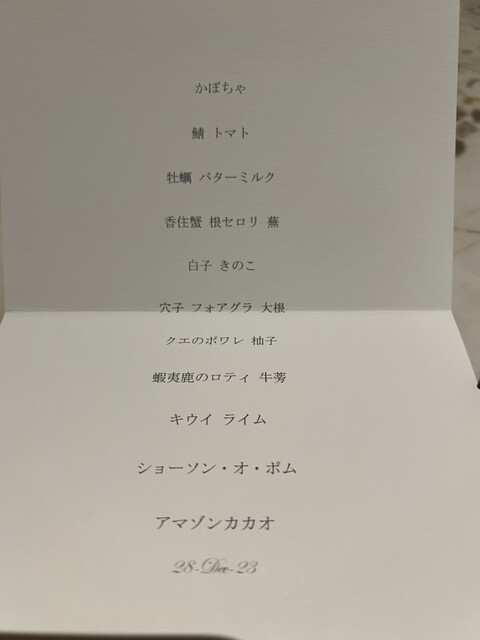 かぼちゃ
鯖 トマト
牡蠣 バターミルク
香住蟹 根セロリ 蕪
白子 きのこ
穴子 フォアグラ 大根
クエのポワレ 柚子
蝦夷鹿のロティ 牛蒡
キウイ ライム
ショーソン・オ・ポム
アマゾンカカオ
28-Dec-23